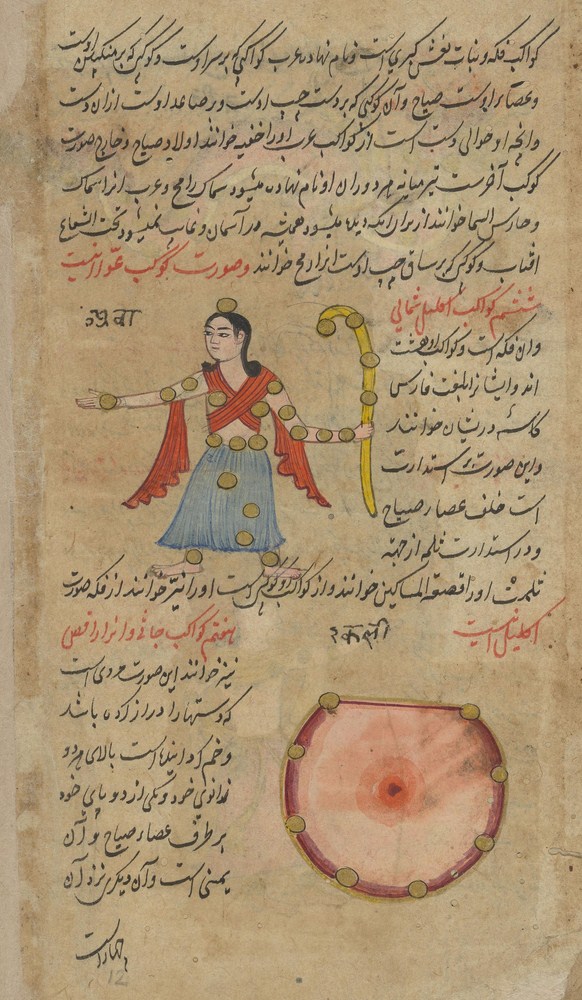 کواکب فکه و بنات نعش کبری است و نام نهاده عرب کواکبی که بر سر اوست و کوکبی که بر منکبین اوست
و عصا بر اوست صیاح و آن کوکبی که بر دست چپ اوست و بر صاعد اوست از آن دست
و انچه او حوالی دست است از کواکب عرب او را خوانند اولاد صیاح و خارج صورت
کوکب آخرست سرخ میانه هر دو ران او نام نهاده میشود سماک رامح و عرب انرا سماک
و حارس السما خوانند از برای آنکه دیده میشود همیشه در آسمان و غایب نمیشود تحت الشعاع
افتاب و کوکبی که بر ساق چپ اوست انرا رمح خوانند و صورت کوکب عوا اینست
ششم کواکب اکلیل شمالی
وان فکه است و کواکب او هشت
اند و ایشانرا بلغت فارسی
کاسه درویشان خوانند
و این صورت بر استدارت
است خلف عصار صیاح
و در استدارت ثلمه از جهة
ثلمت او را قصعة المساکین خوانند و از کواکب او کوکبی است او را نیّر خوانند از فکه صورت
اکلیل است
هفتم کواکب جاثی و انرا راقص
نیز خوانند این صورت مردی است
که دستها را دراز کرده باشد
و خم کرده است بالای هر دو
زانوی خود و یکی از دو پای خود
بر طرف عصار صیاح و آن
یمنی است و آن دیگری نزد آن
چهار است
12